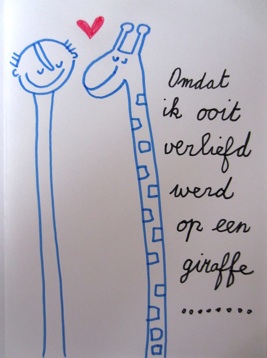 Omdat
ik ooit
verliefd
werd
op een
giraffe
.........